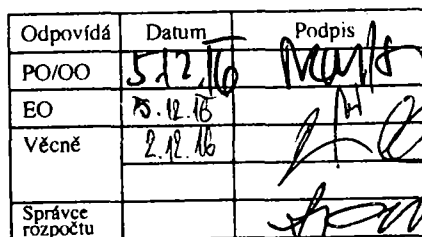 Odpovídá Datum Podpis
PO/OO 5.12.16
EO 5.12.16
Věcně 2.12.16
Správce
rozpočtu